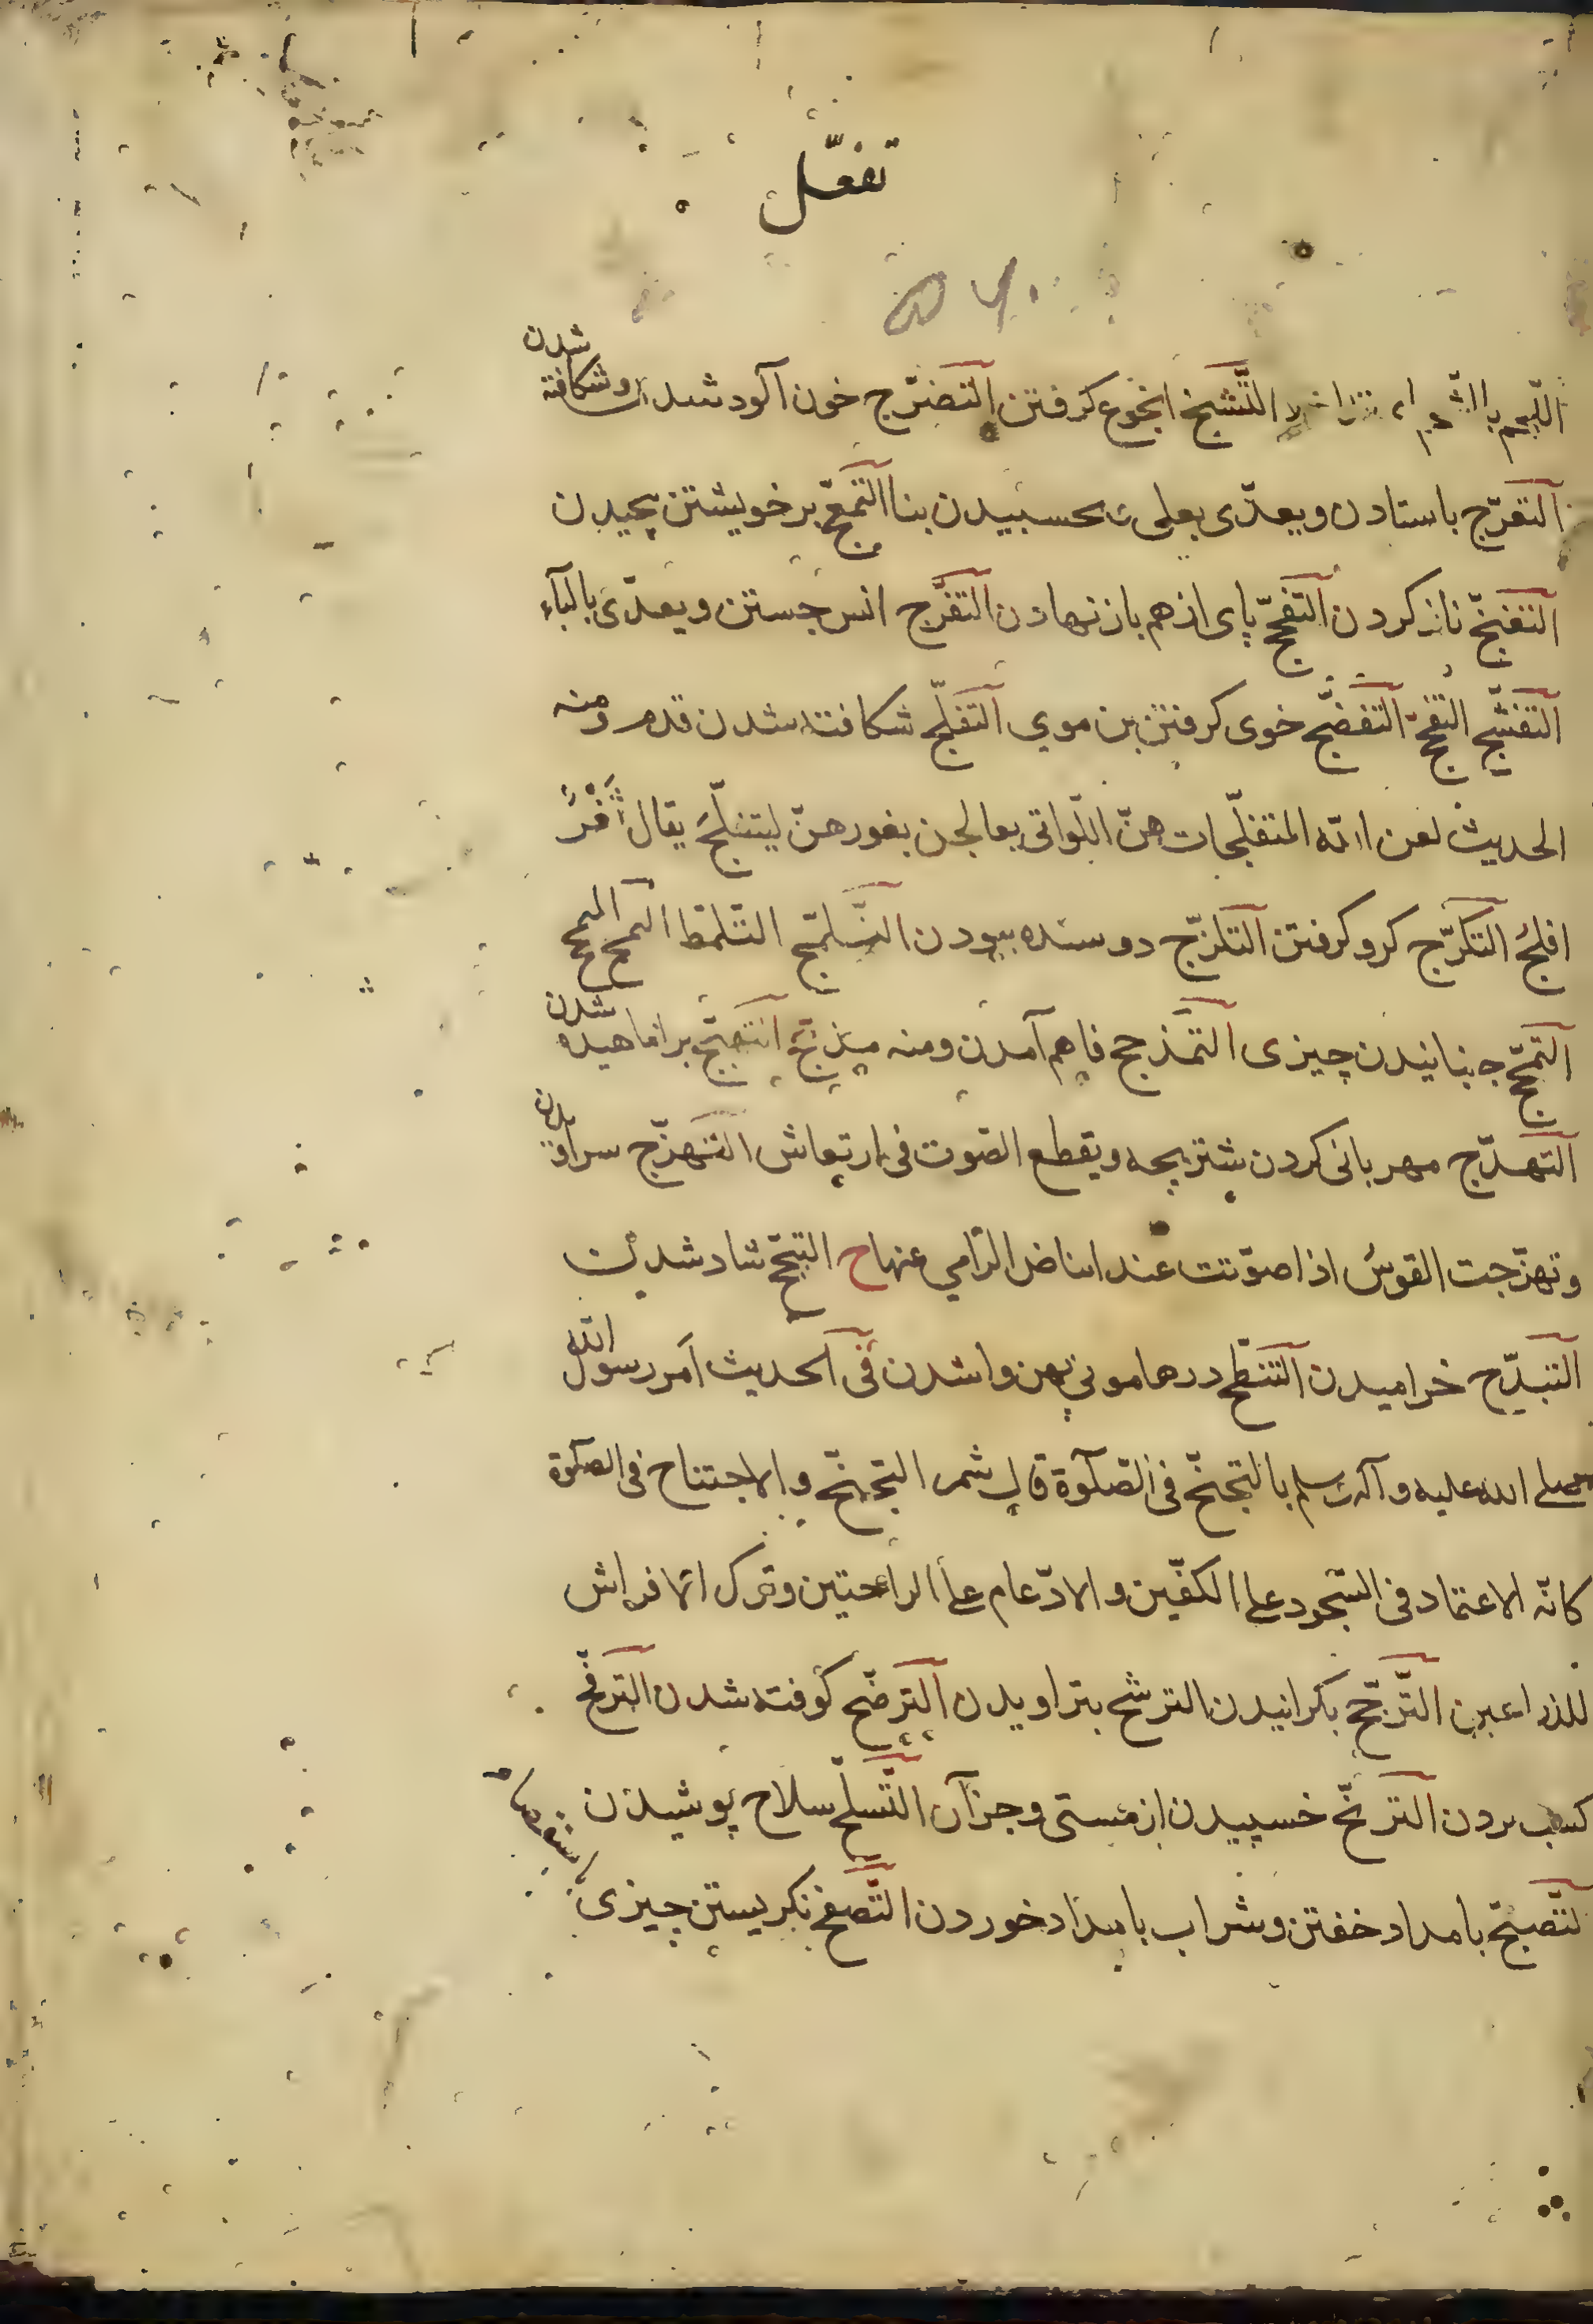 تفعّل
التّشنّج انجوغ گرفتن التّضرّج خون آلود شدن و شکافته شدن
التّعرّج باستادن و یعدّی بعلی بحسبیدن بنا التّمعّج بر خویشتن پیچیدن
التّغنّج ناز کردن التّفجّج پای از هم باز نهادن التّفرّج انس جستن و یعدّی بالبآء
التّفشّج التّفحّج التّفضّج خوی گرفتن بن موی التّفلّج شکافته شدن قدم و منه
الحدیث لعن الله المتفلّجات هنّ اللّواتی یعالجن بغورهنّ لیتفلّج یقال ثَغْرٌ
افلجُ التّکرّج کرو گرفتن التّلزّج دوسنده ببودن التّلمّج التّلمّظ
التّمجّج جنبانیدن چیزی التّمذحج فاهم آمدن و منه مذحج بر اماهیده شدن
التّهدّج مهربانی کردن شتر بچه و یقطع الصّوت فی ارتعاش التّهزّج سراویدن
و تهزّجت القوسُ اذا صوّتت عند انباض الرّامی عنها ح التّبجّح شاد شدن
التّبدّح خرامیدن التّبطّح در هامونی پهن واشدن فی الحدیث اَمر رسول الله
صلی الله علیه و آله و سلم بالتّجنّح فی الصّلوة قال شمر التّجنّح و الاجتناح فی الصّلوة
کانّه الاعتماد فی السّجود علی الکفّین و الادّعام علی الراحتین و ترک الافتراش
للذراعین التّرجّح بگرانیدن الترشّح بتراویدن التّرضّح کوفته شدن التّرقّح
کسب بردن التّرنّح خسپیدن از مستی و جز آن التّسلّح سلاح پوشیدن
التّصبّح بامداد خفتن و شراب بامداد خوردن التّصفّح نگریستن چیزی